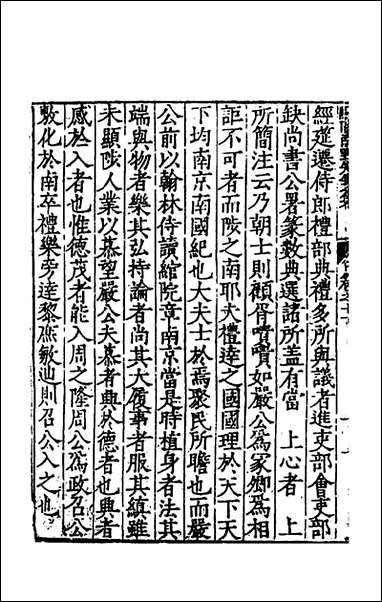 經筵遷侍郎禮部典禮多所與議者進吏部會吏部
缺尚書公署篆數典選諸所盖有當 上心者 上
所簡注云乃朝士則顧胥嘖嘖如嚴公爲冢卿爲相
詎不可者而陟之南耶夫禮達之國國理於天下天
下均南京南國紀也大夫士於焉聚民所瞻也而嚴
公前以翰林侍讀綰院章南京當是時植身者法其
端與物者樂其弘持論者尚其大履事者服其縝雖
未顯陟人業以慕望嚴公夫慕者興於德者也興者
感於入者也惟德茂者能入周之隆周公爲政召公
敷化於南卒禮樂旁達黎庶敏迪則召公入之也